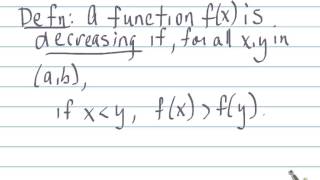 Defn: A function f(x) is
decreasing if, for all x,y in
(a,b),
if x<y, f(x)>f(y).